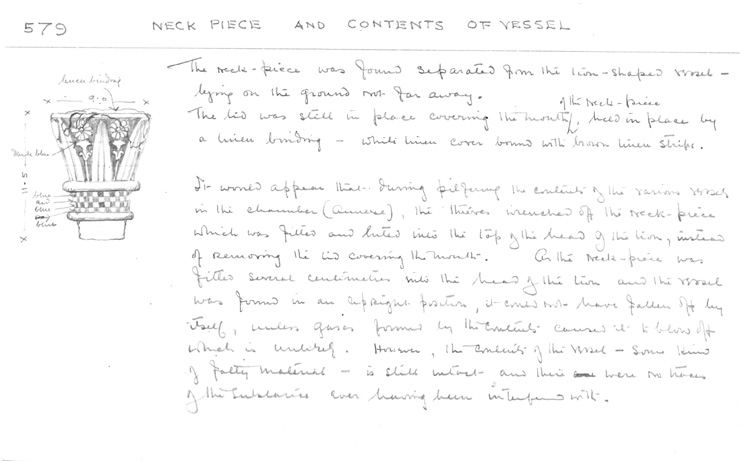 579 NECK PIECE AND CONTENTS OF VESSEL
The neck-piece was found separated from the lion-shaped vessel –
lying on the ground not far away.
of the neck-piece
The lid was still in place covering the mouth, held in place by
a linen binding – white linen cover bound with brown linen strips.
It would appear that during pilfering the contents of the various vessels
in the chamber (Annexe), the thieves wrenched off the neck-piece
which was fitted and luted into the top of the head of the lion, instead
of removing the lid covering the mouth. As the neck-piece was
fitted several centimetres into the head of the lion and the vessel
was found in an upright position, it could not have fallen off by
itself, unless gases formed by the contents caused it to blow off
which is unlikely. However, the contents of the vessel – some kind
of fatty material – is still intact and there were no traces
of the substances ever having been interfered with.
linen binding
9.0
15.5
blue
red
blue
blue